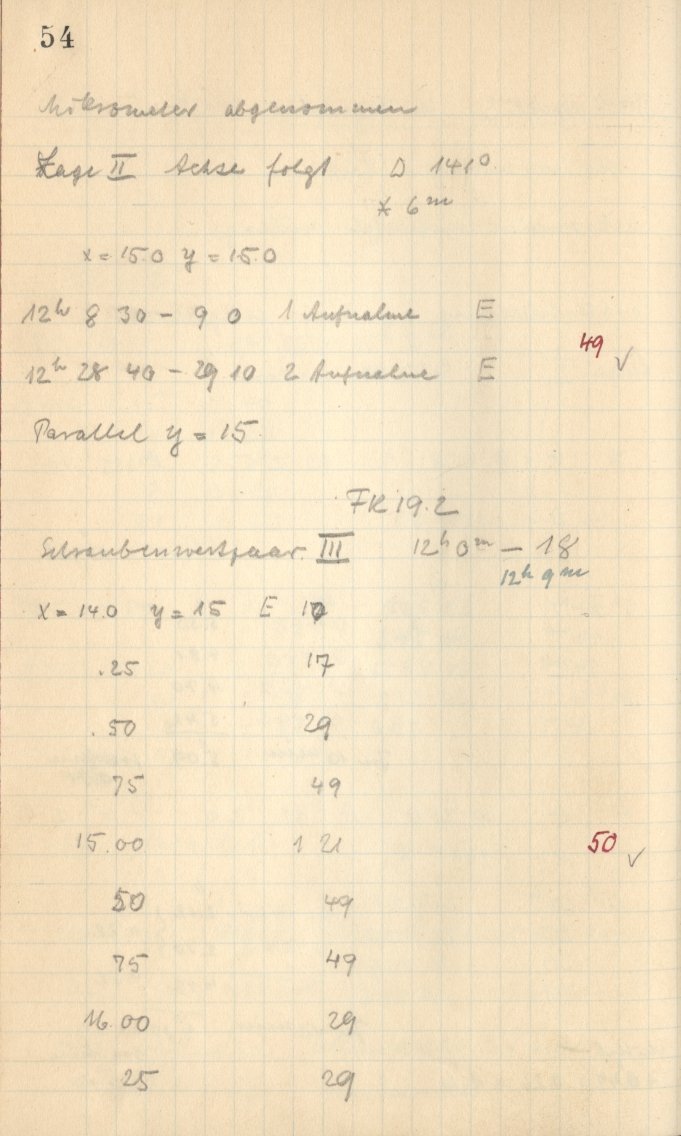 54
Mikrometer abgenommen
Lage II Achse folgt D 141°
* 6m
x = 15.0 y = 15.0
12h 8 30 – 9 0 1 Aufnahme E
49 ✓
12h 28 40 – 29 10 2 Aufnahme E
Parallel y = 15
FK 19.2
Schraubenwertpaar. III 12h 0m – 18
12h 9m
x = 14.0 y = 15 E 10
.25 17
.50 29
75 49
15.00 1 21
50 ✓
50 49
75 49
16.00 29
25 29